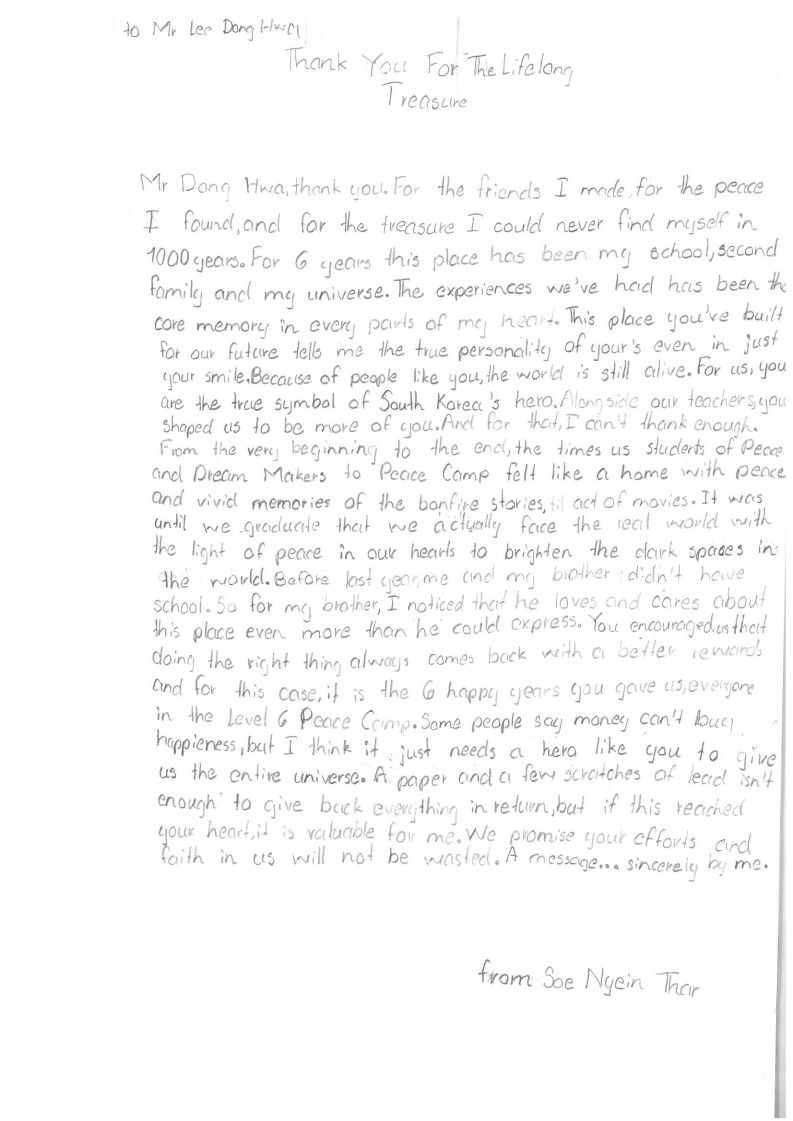 to Mr Lee Dong Hwa
Thank You For The Lifelong
Treasure
Mr Dong Hwa, thank you. For the friends I made, for the peace
I found, and for the treasure I could never find myself in
1000 years. For 6 years this place has been my school, second
family and my universe. The experiences we've had has been the
core memory in every parts of my heart. This place you've built
for our future tells me the true personality of your's even in just
your smile. Because of people like you, the world is still alive. For us, you
are the true symbol of South Korea's hero. Alongside our teachers, you
shaped us to be more of you. And for that, I can't thank enough.
From the very beginning to the end, the times us students of Peace
and Dream Makers to Peace Camp felt like a home with peace
and vivid memories of the bonfire stories, til act of movies. It was
until we graduate that we actually face the real world with
the light of peace in our hearts to brighten the dark spaces in
the world. Before last year, me and my brother didn't have
school. So for my brother, I noticed that he loves and cares about
this place even more than he could express. You encouraged us that
doing the right thing always comes back with a better rewards
and for this case, it is the 6 happy years you gave us, everyone
in the Level 6 Peace Camp. Some people say money can't buy
happieness, but I think it just needs a hero like you to give
us the entire universe. A paper and a few scratches of lead isn't
enough to give back everything in return, but if this reached
your heart, it is valuable for me. We promise your efforts and
faith in us will not be wasted. A message... sincerely by me.
from Soe Nyein Thar